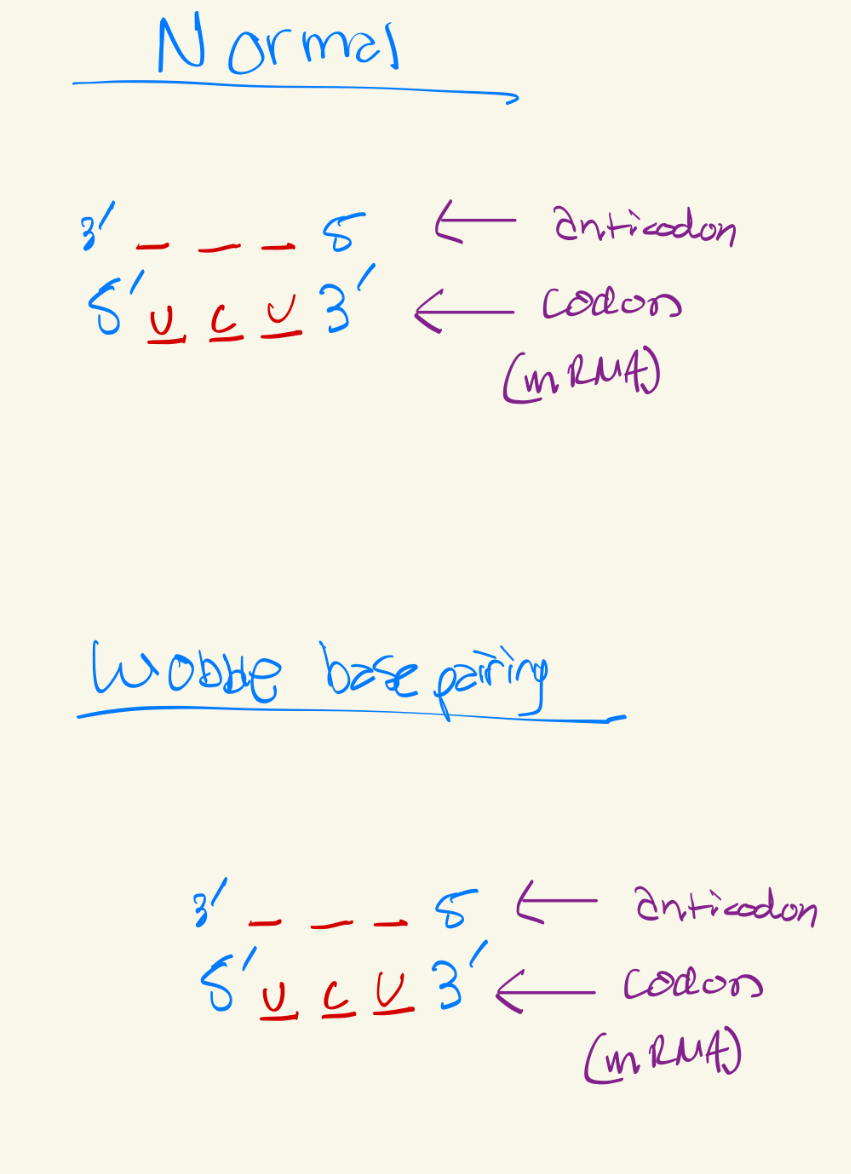 Normal
3' _ _ _ 5 ← anticodon
5' U C U 3' ← codon
(mRNA)
Wobble base pairing
3' _ _ _ 5 ← anticodon
5' U C U 3' ← codon
(mRNA)